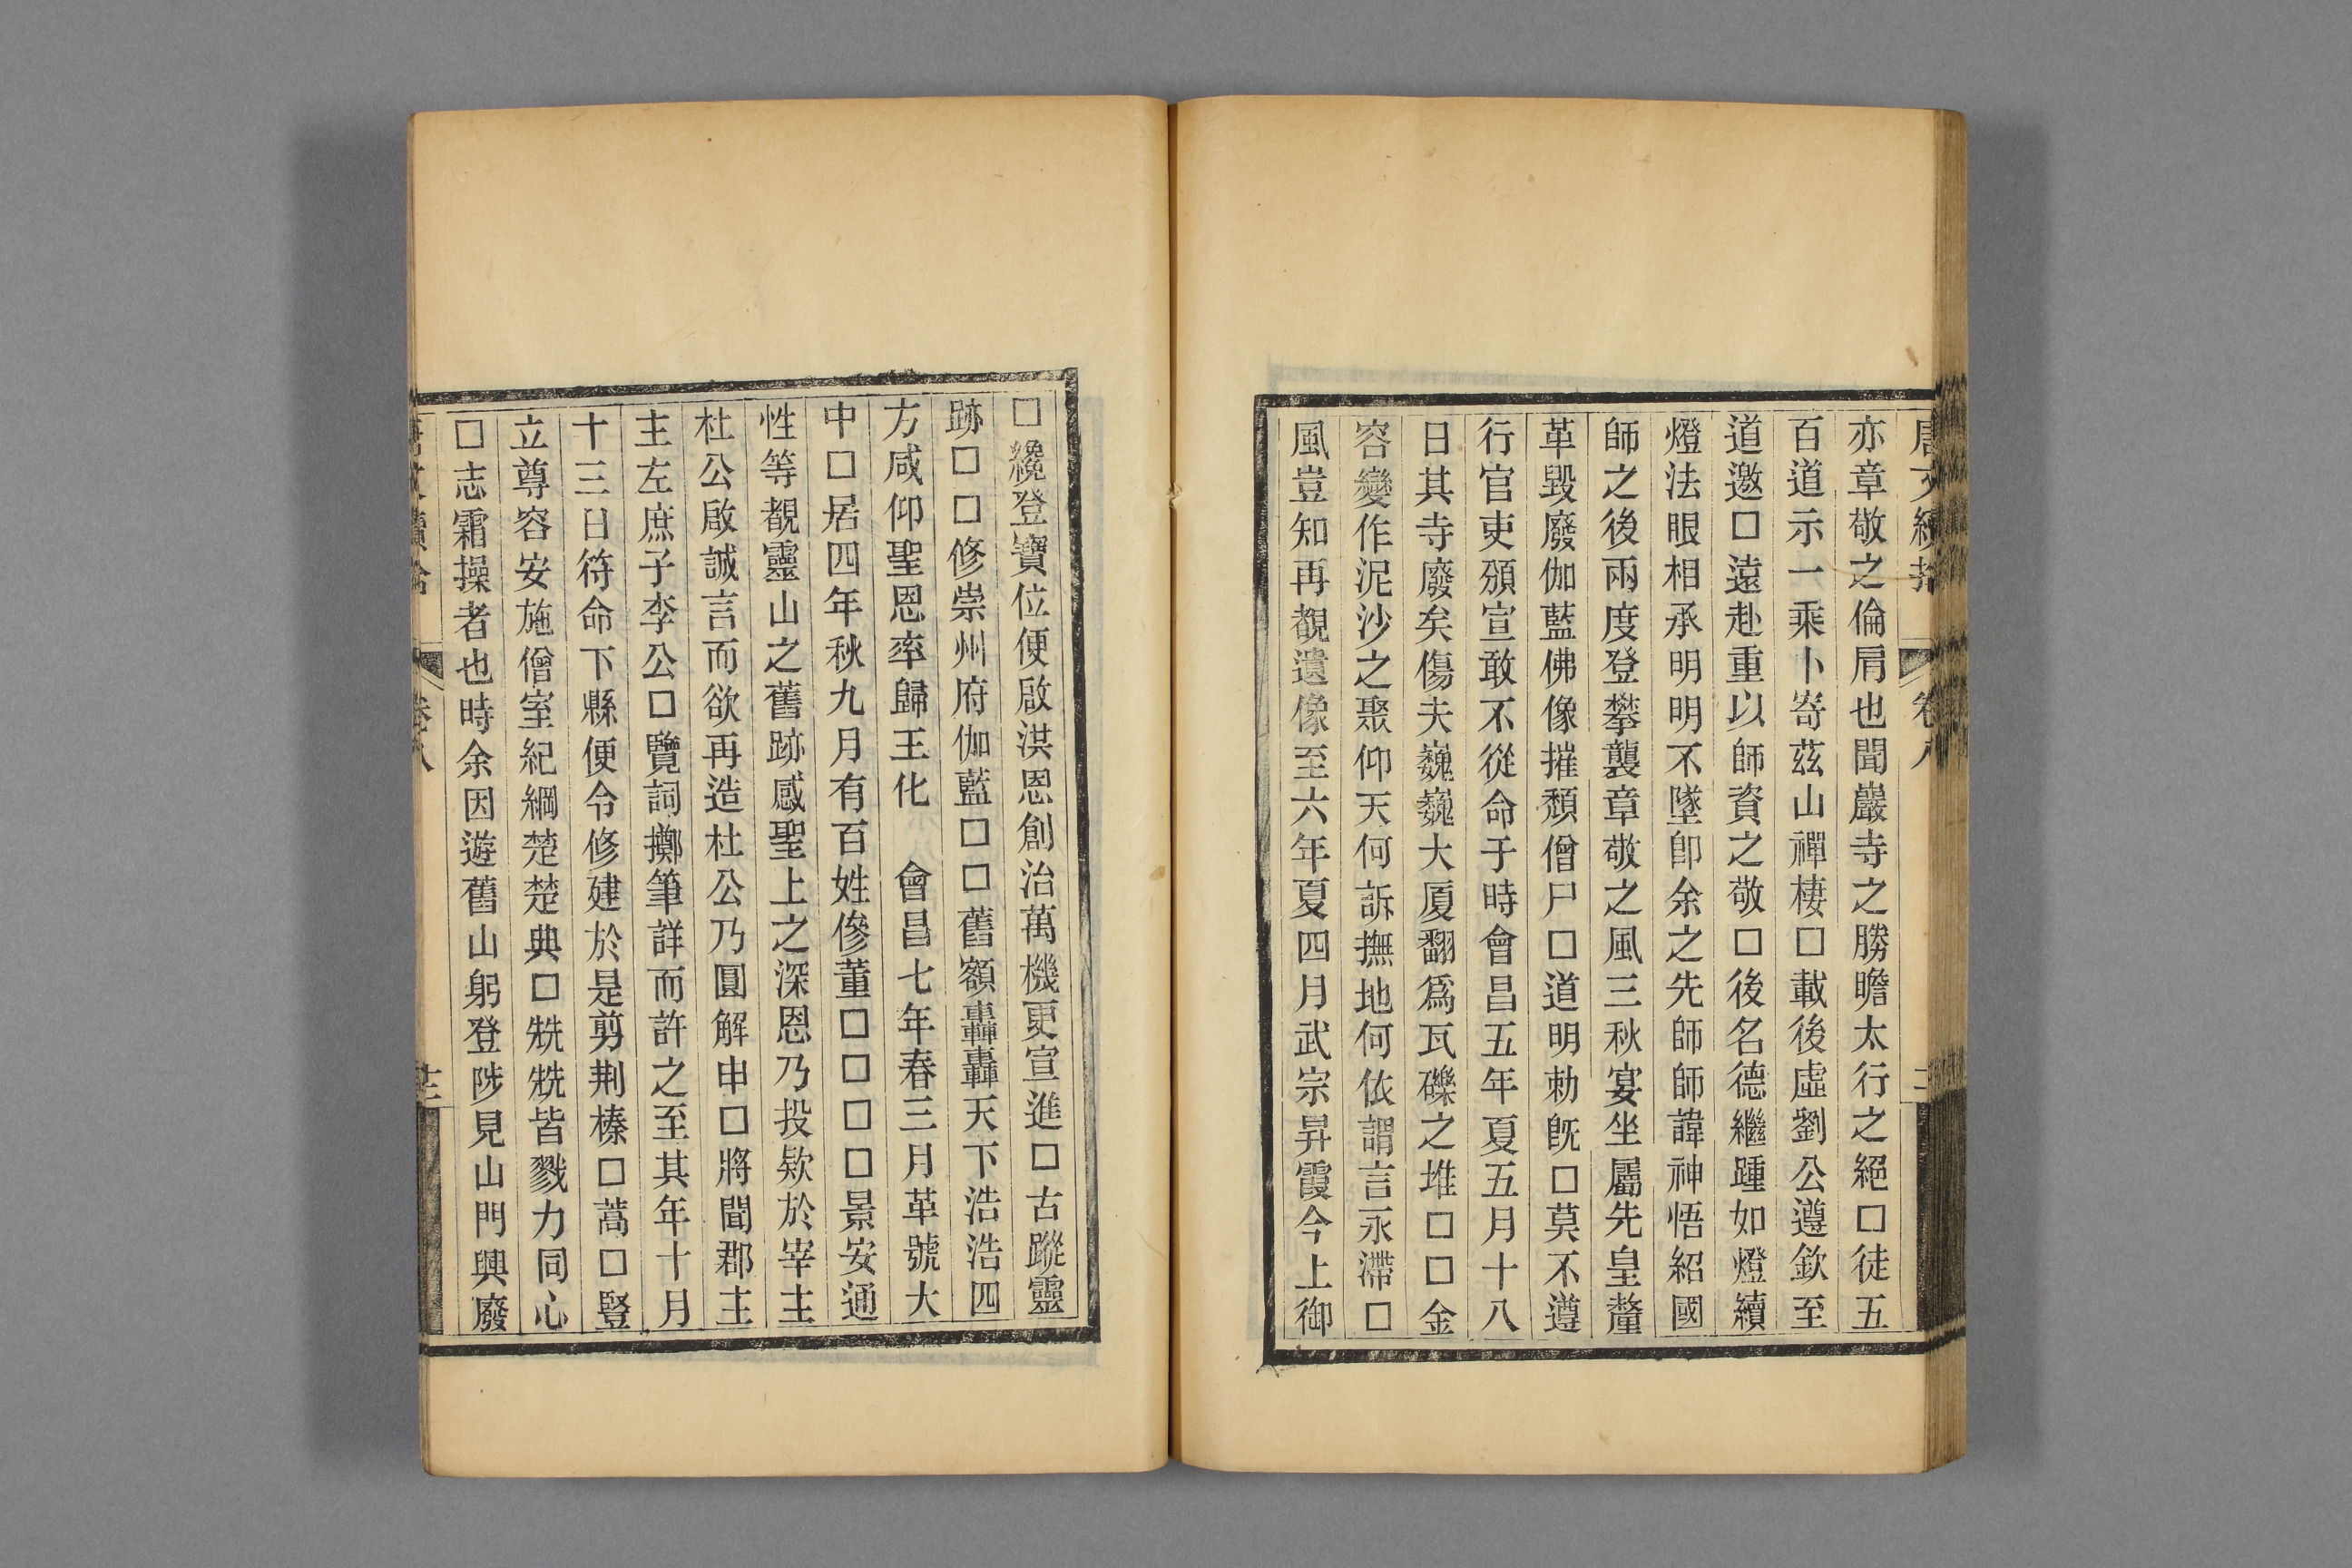 亦章敬之倫肩也聞巖寺之勝瞻太行之絕□徒五
百道示一乘卜寄茲山禪棲□載後虛劉公遵欽至
道邀□遠赴重以師資之敬□後名德繼踵如燈續
燈法眼相承明明不墜卽余之先師師諱神悟紹國
師之後兩度登攀襲章敬之風三秋宴坐屬先皇釐
革毀廢伽藍佛像摧頹僧尸□道明勅旣□莫不遵
行官吏頒宣敢不從命于時會昌五年夏五月十八
日其寺廢矣傷夫巍巍大厦翻爲瓦礫之堆□□金
容變作泥沙之聚仰天何訴撫地何依謂言永滯□
風豈知再覩遺像至六年夏四月武宗昇霞今上御
□纔登寶位便啟洪恩創治萬機更宣進□古蹤靈
跡□□修崇州府伽藍□□舊額轟轟天下浩浩四
方咸仰聖恩率歸王化 會昌七年春三月革號大
中□居四年秋九月有百姓傪董□□□□景安通
性等覩靈山之舊跡感聖上之深恩乃投欵於宰主
杜公啟誠言而欲再造杜公乃圓解申□將聞郡主
主左庶子李公□覽詞擲筆詳而許之至其年十月
十三日符命下縣便令修建於是剪荆榛□蒿□豎
立尊容安施僧室紀綱楚楚典□兟兟皆戮力同心
□志霜操者也時余因遊舊山躬登陟見山門興廢
卷八